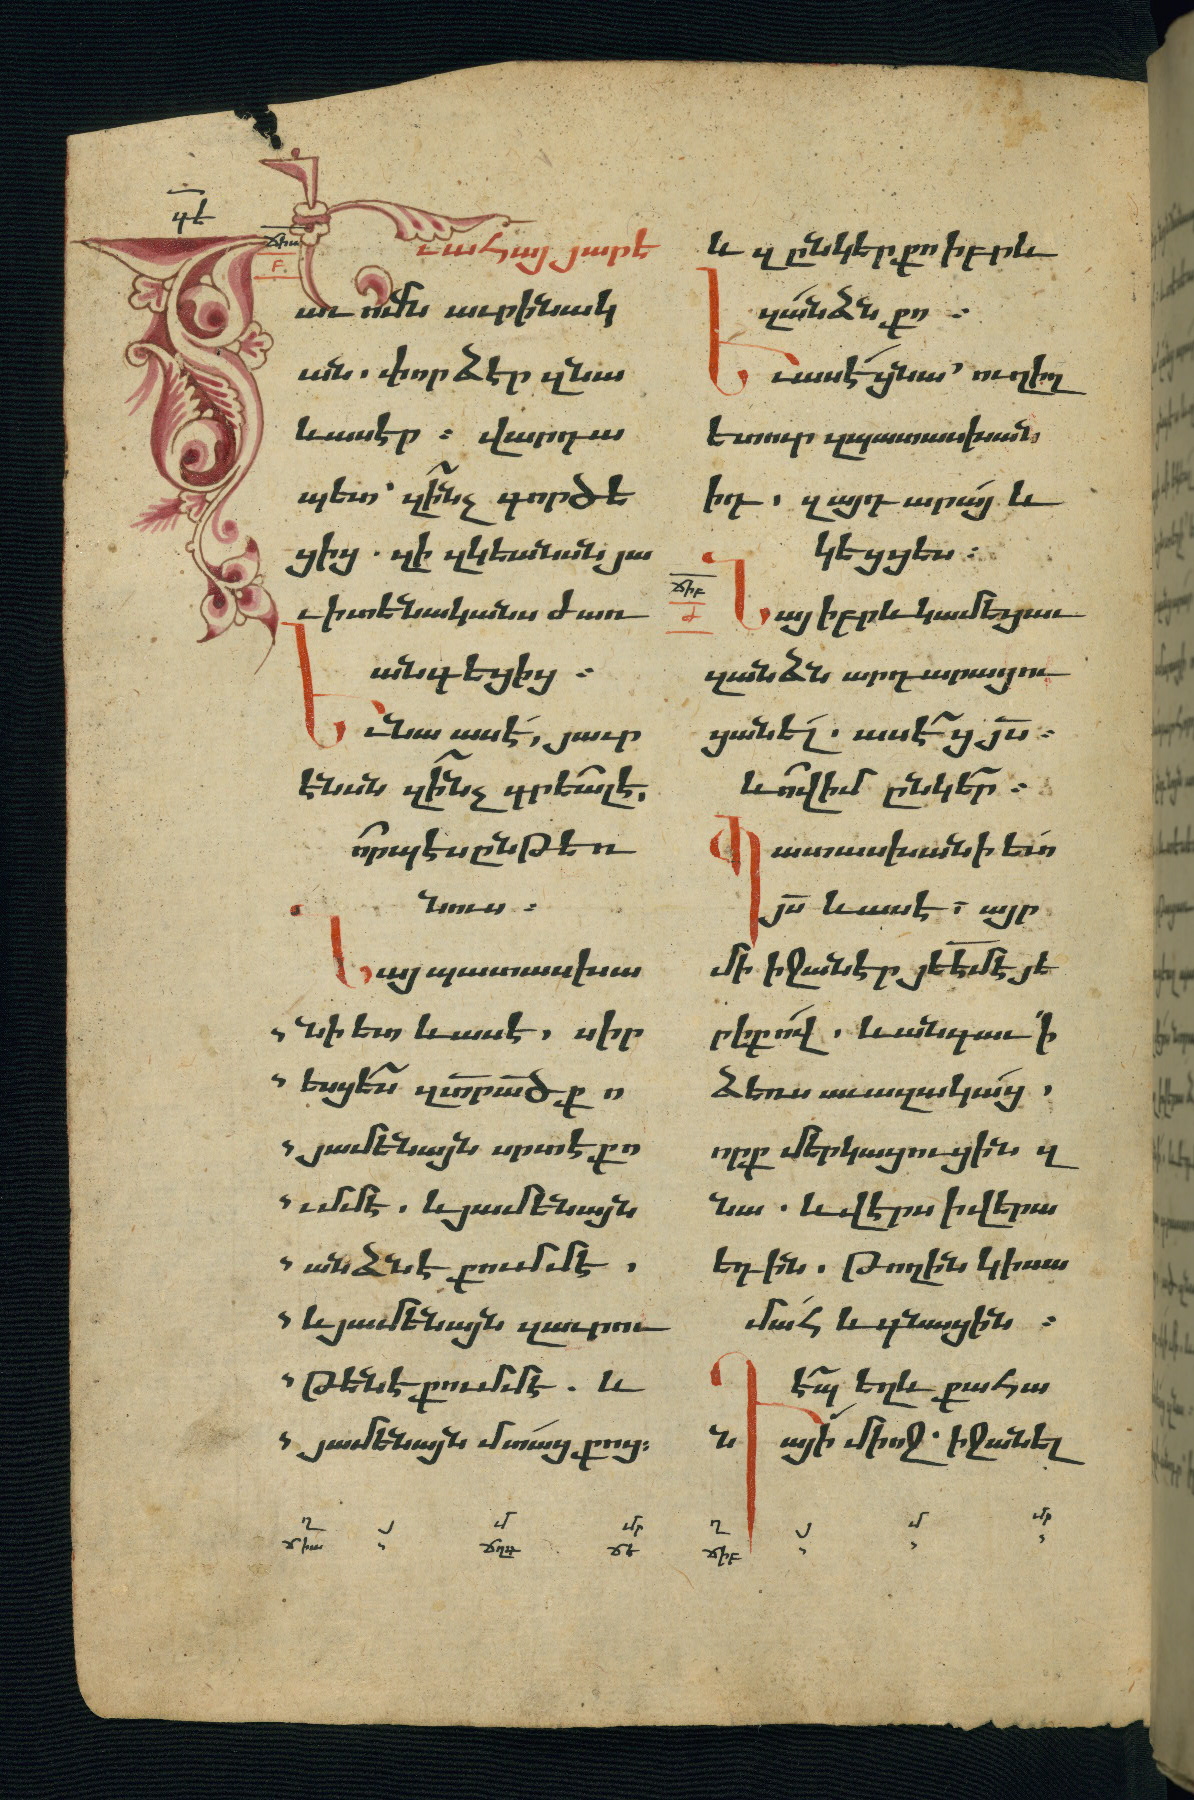 գէ
ճիա
բ
Եւ ահա յարե
աւ ոմն աւրինակ
ան. փորձէր զնա
և ասէր : վարդա
պետ՝ զի՞նչ գործե
ցից. զի զկեանսն յա
ւիտենականս ժառ
անգեցից :
Եւ նա ասէ, յաւր
էնսն զի՞նչ գրեալ է,
ո՞րպէս ընթեռ
նուս :
Նայ պատասխա
նի ետ և ասէ, սիր
եսցես զտր ած քո
յամենայն սրտէ քո
ւմմէ. և յամենայն
անձնէ քումմէ,
և յամենայն զաւրու
թենէ քումմէ. և
յամենայն մտաց քոց:
և զընկեր քո իբրև
զանձն քո :
Եւ ասէ ցնա՝ ուղիղ
ետուր զպատասխան
իդ, զայդ արա՛ց և
կեցցես :
ճիբ
ժ
Նայ իբրև կամեցաւ
զանձն արդարացու
ցանել. ասէ ցյս :
և ո՞վ իմ ընկեր :
Պատասխանի ետ
յս և ասէ : այր
մի իջանէր յեէմէ յե
րիքով, և անգաւ ՚ի
ձեռս աւազակաց,
որք մերկացուցին զ
նա. և վէրս ի վերա
եդին, թողին կիսա
մահ և գնացին :
Դէպ եղև քահա
նայի միոջ՝ իջանել
ղ յ մ մր ղ յ մ մր
ճիա ճղգ ճե ճիբ